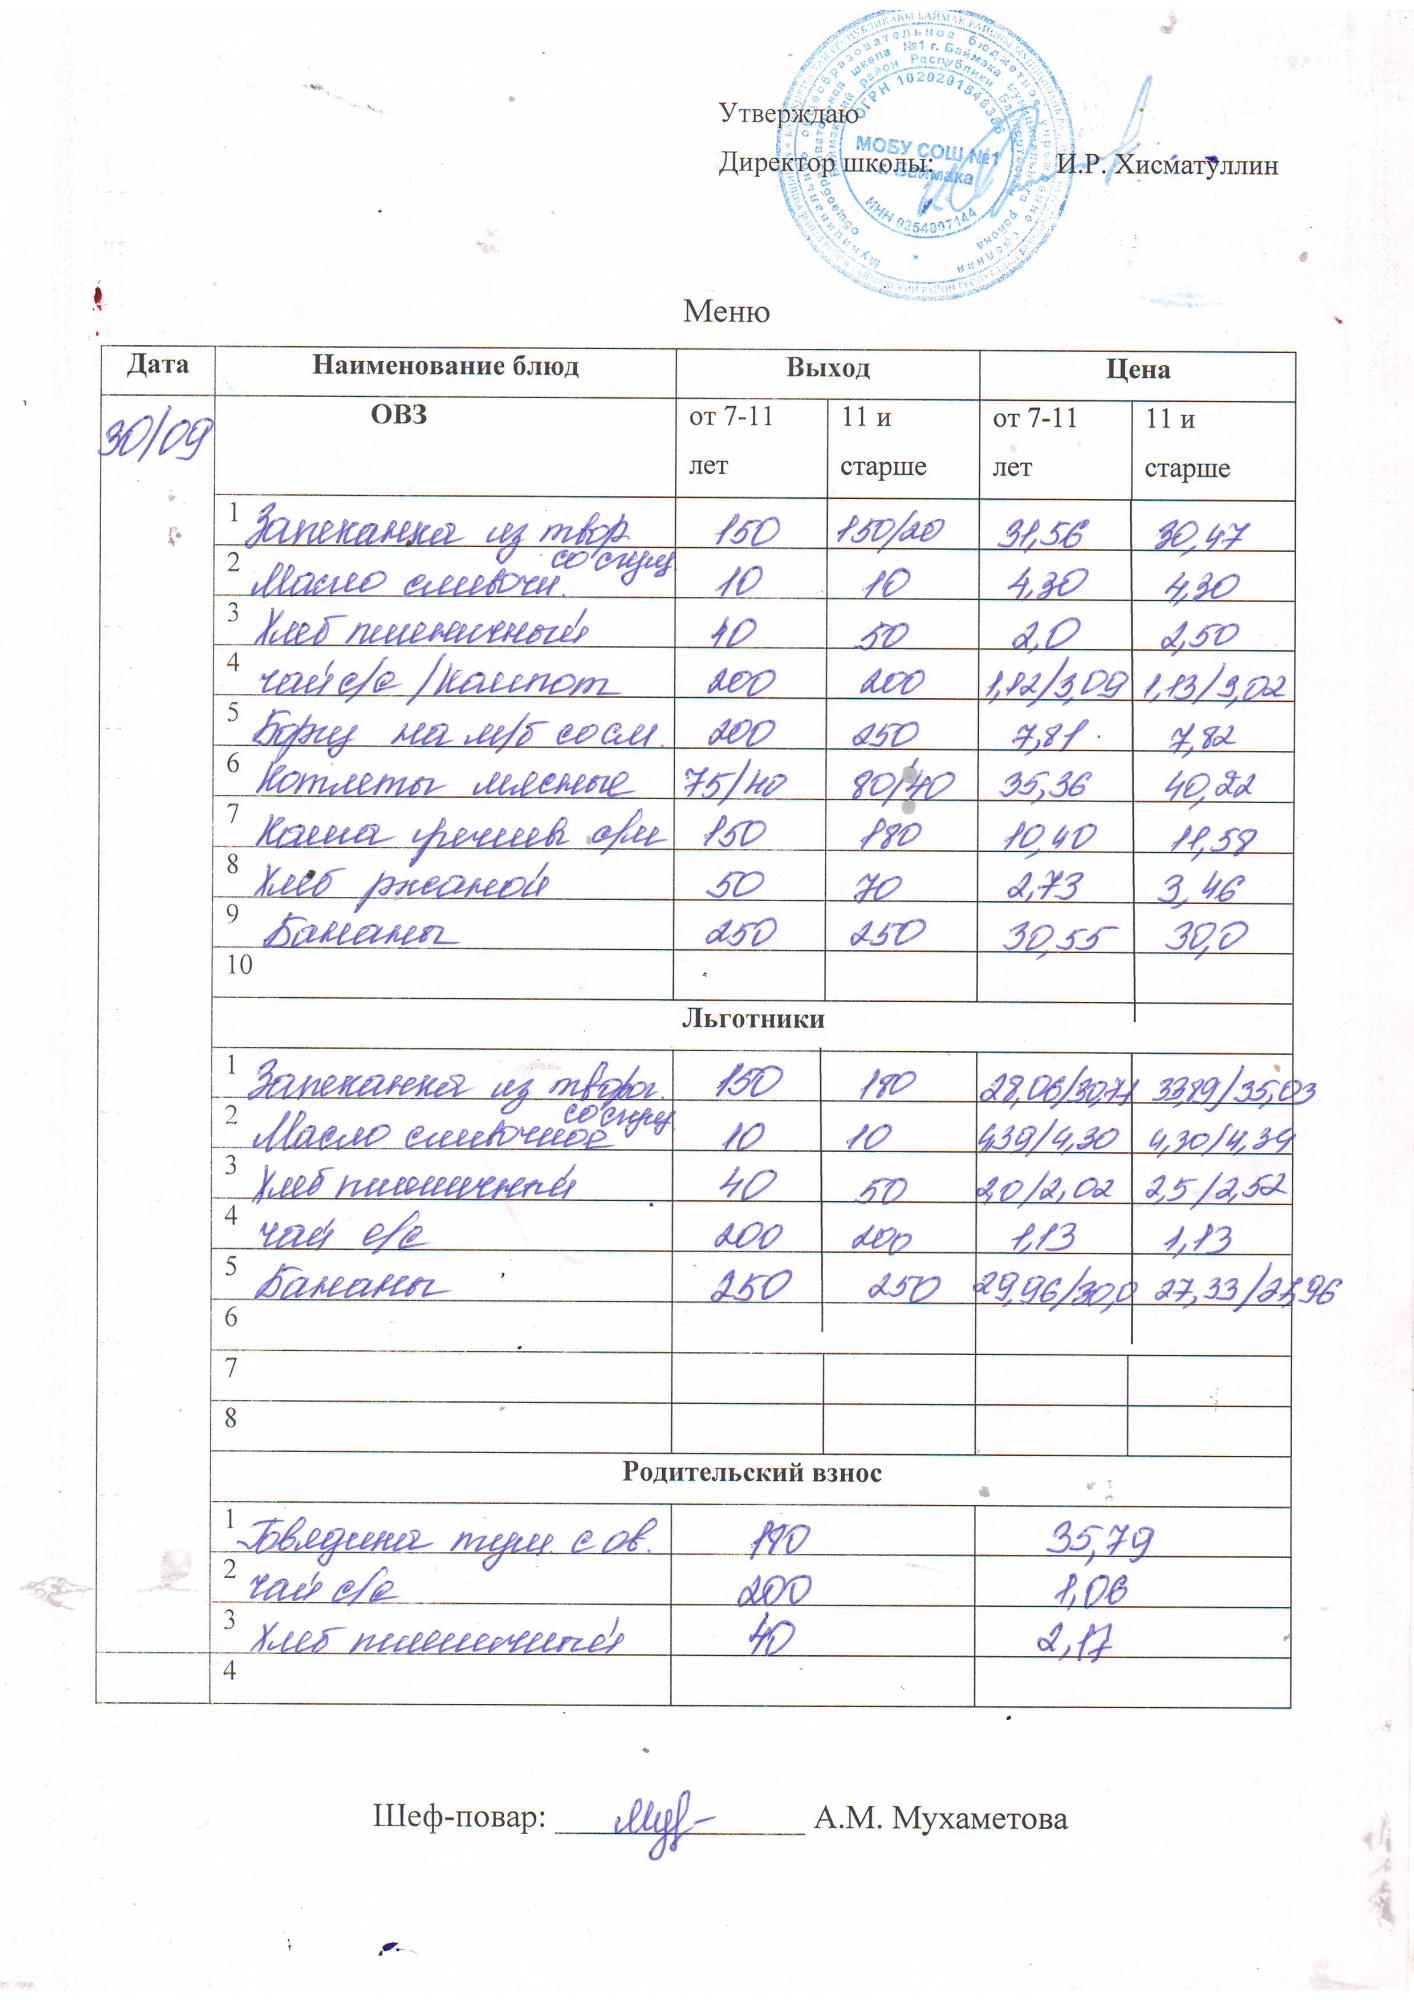 Утверждаю
Директор школы: И.Р. Хисматуллин
ОГРН 1020201546386
МОБУ СОШ №1
г. Баймака
ИНН 0254007144
Меню
Дата Наименование блюд Выход Цена
30/09 ОВЗ от 7-11 лет 11 и старше от 7-11 лет 11 и старше
1 Запеканка из твор. 150 150/20 31,56 30,47
со сгущ.
2 Масло сливочн. 10 10 4,30 4,30
3 Хлеб пшеничный 40 50 2,0 2,50
4 чай с/с /компот 200 200 1,12/3,09 1,13/3,02
5 Борщ на м/б со см. 200 250 7,81 7,82
6 Котлеты мясные 75/40 80/40 35,36 40,22
7 Каша гречнев с/м 150 180 10,40 11,58
8 Хлеб ржаной 50 70 2,73 3,46
9 Бананы 250 250 30,55 30,0
10
Льготники
1 Запеканка из творог. 150 180 28,06/30,71 33,89/35,03
со сгущ.
2 Масло сливочное 10 10 4,39/4,30 4,30/4,39
3 Хлеб пшеничный 40 50 2,0/2,02 2,5/2,52
4 чай с/с 200 200 1,13 1,13
5 Бананы 250 250 29,96/30,0 27,33/
6
7
8
Родительский взнос
1 Говядина туш. с ов. 35,79
2 чай с/с 200 1,06
3 Хлеб пшеничный 40 2,17
4
Шеф-повар: А.М. Мухаметова